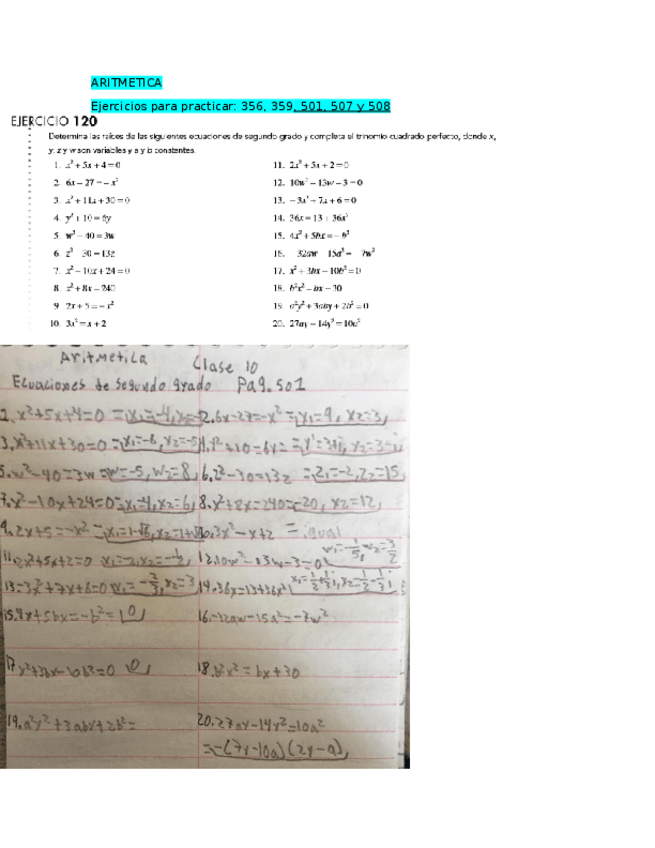 ARITMETICA
Ejercicios para practicar: 356, 359, 501, 507 y 508
EJERCICIO 120
Determina las raíces de las siguientes ecuaciones de segundo grado y completa el trinomio cuadrado perfecto, donde x,
y, z y w son variables y a y b constantes.
1. x² + 5x + 4 = 0
2. 6x − 27 = − x²
3. x² + 11x + 30 = 0
4. y² + 10 = 6y
5. w² − 40 = 3w
6. z² − 30 = 13z
7. x² − 10x + 24 = 0
8. x² + 8x = 240
9. 2x + 5 = − x²
10. 3x² = x + 2
11. 2x² + 5x + 2 = 0
12. 10w² − 13w − 3 = 0
13. − 3x² + 7x + 6 = 0
14. 36x = 13 + 36x²
15. 4x² + 5bx = − b²
16. − 32aw − 15a² = − 7w²
17. x² + 3bx − 10b² = 0
18. b²x² − bx = 30
19. a²y² + 3aby + 2b² = 0
20. 27ay − 14y² = 10a²
Aritmetica Clase 10
Ecuaciones de segundo grado Pag. 501
x²+5x+4=0 = x₁=-4, 2. 6x-27=-x² = x₁=9, x₂=3,
3. x²+11x+30=0 = x₁=-6, x₂=-5 y²+10=6y
5. w²-40=3w = w=-5, w₂=8, 6. z²-30=13z = z₁=-2, z₂=15,
7. x²-10x+24=0 x₁=4, x₂=6, 8. x²+8x=240=-20, x₂=12,
9. 2x+5=-x² 3x²-x+2 = igual
2x²+5x+2=0 x₁=-2, x₂=-½ 12. 10w²-13w-3=0 w₁=-1/5, w₂=3/2
13-3x²+7x+6=0 x₁=-2/3, x₂=3 14. 36x=13+36x²
15. 4x+5bx=-b²= 0 16.-12aw-15a²=-7w²
17 y²+3bx-10b²=0 0, 18. b²x²=bx+30
19. a²y²+3aby+2b²= 20. 27ay-14y²=10a²
=-(7y-10a)(2y-a),